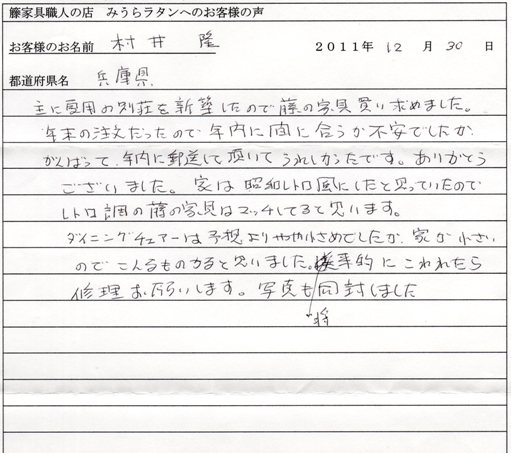 籐家具職人の店 みうらラタンへのお客様の声
お客様のお名前 村井 隆 2011年 12月 30日
都道府県名 兵庫県
主に夏用の別荘を新築したので藤の家具買い求めました。
年末の注文だったので年内に間に合うか不安でしたが
がんばって、年内に郵送して頂いてうれしかったです。ありがとう
ございました。家は昭和レトロ風にしたと思っていたので
レトロ調の藤の家具はマッチしてると思います。
ダイニングチェアーは予想よりやや小さめでしたが、家が小さい
のでこんなものかなと思いました。将来的にこわれたら
修理お願いします。写真も同封しました